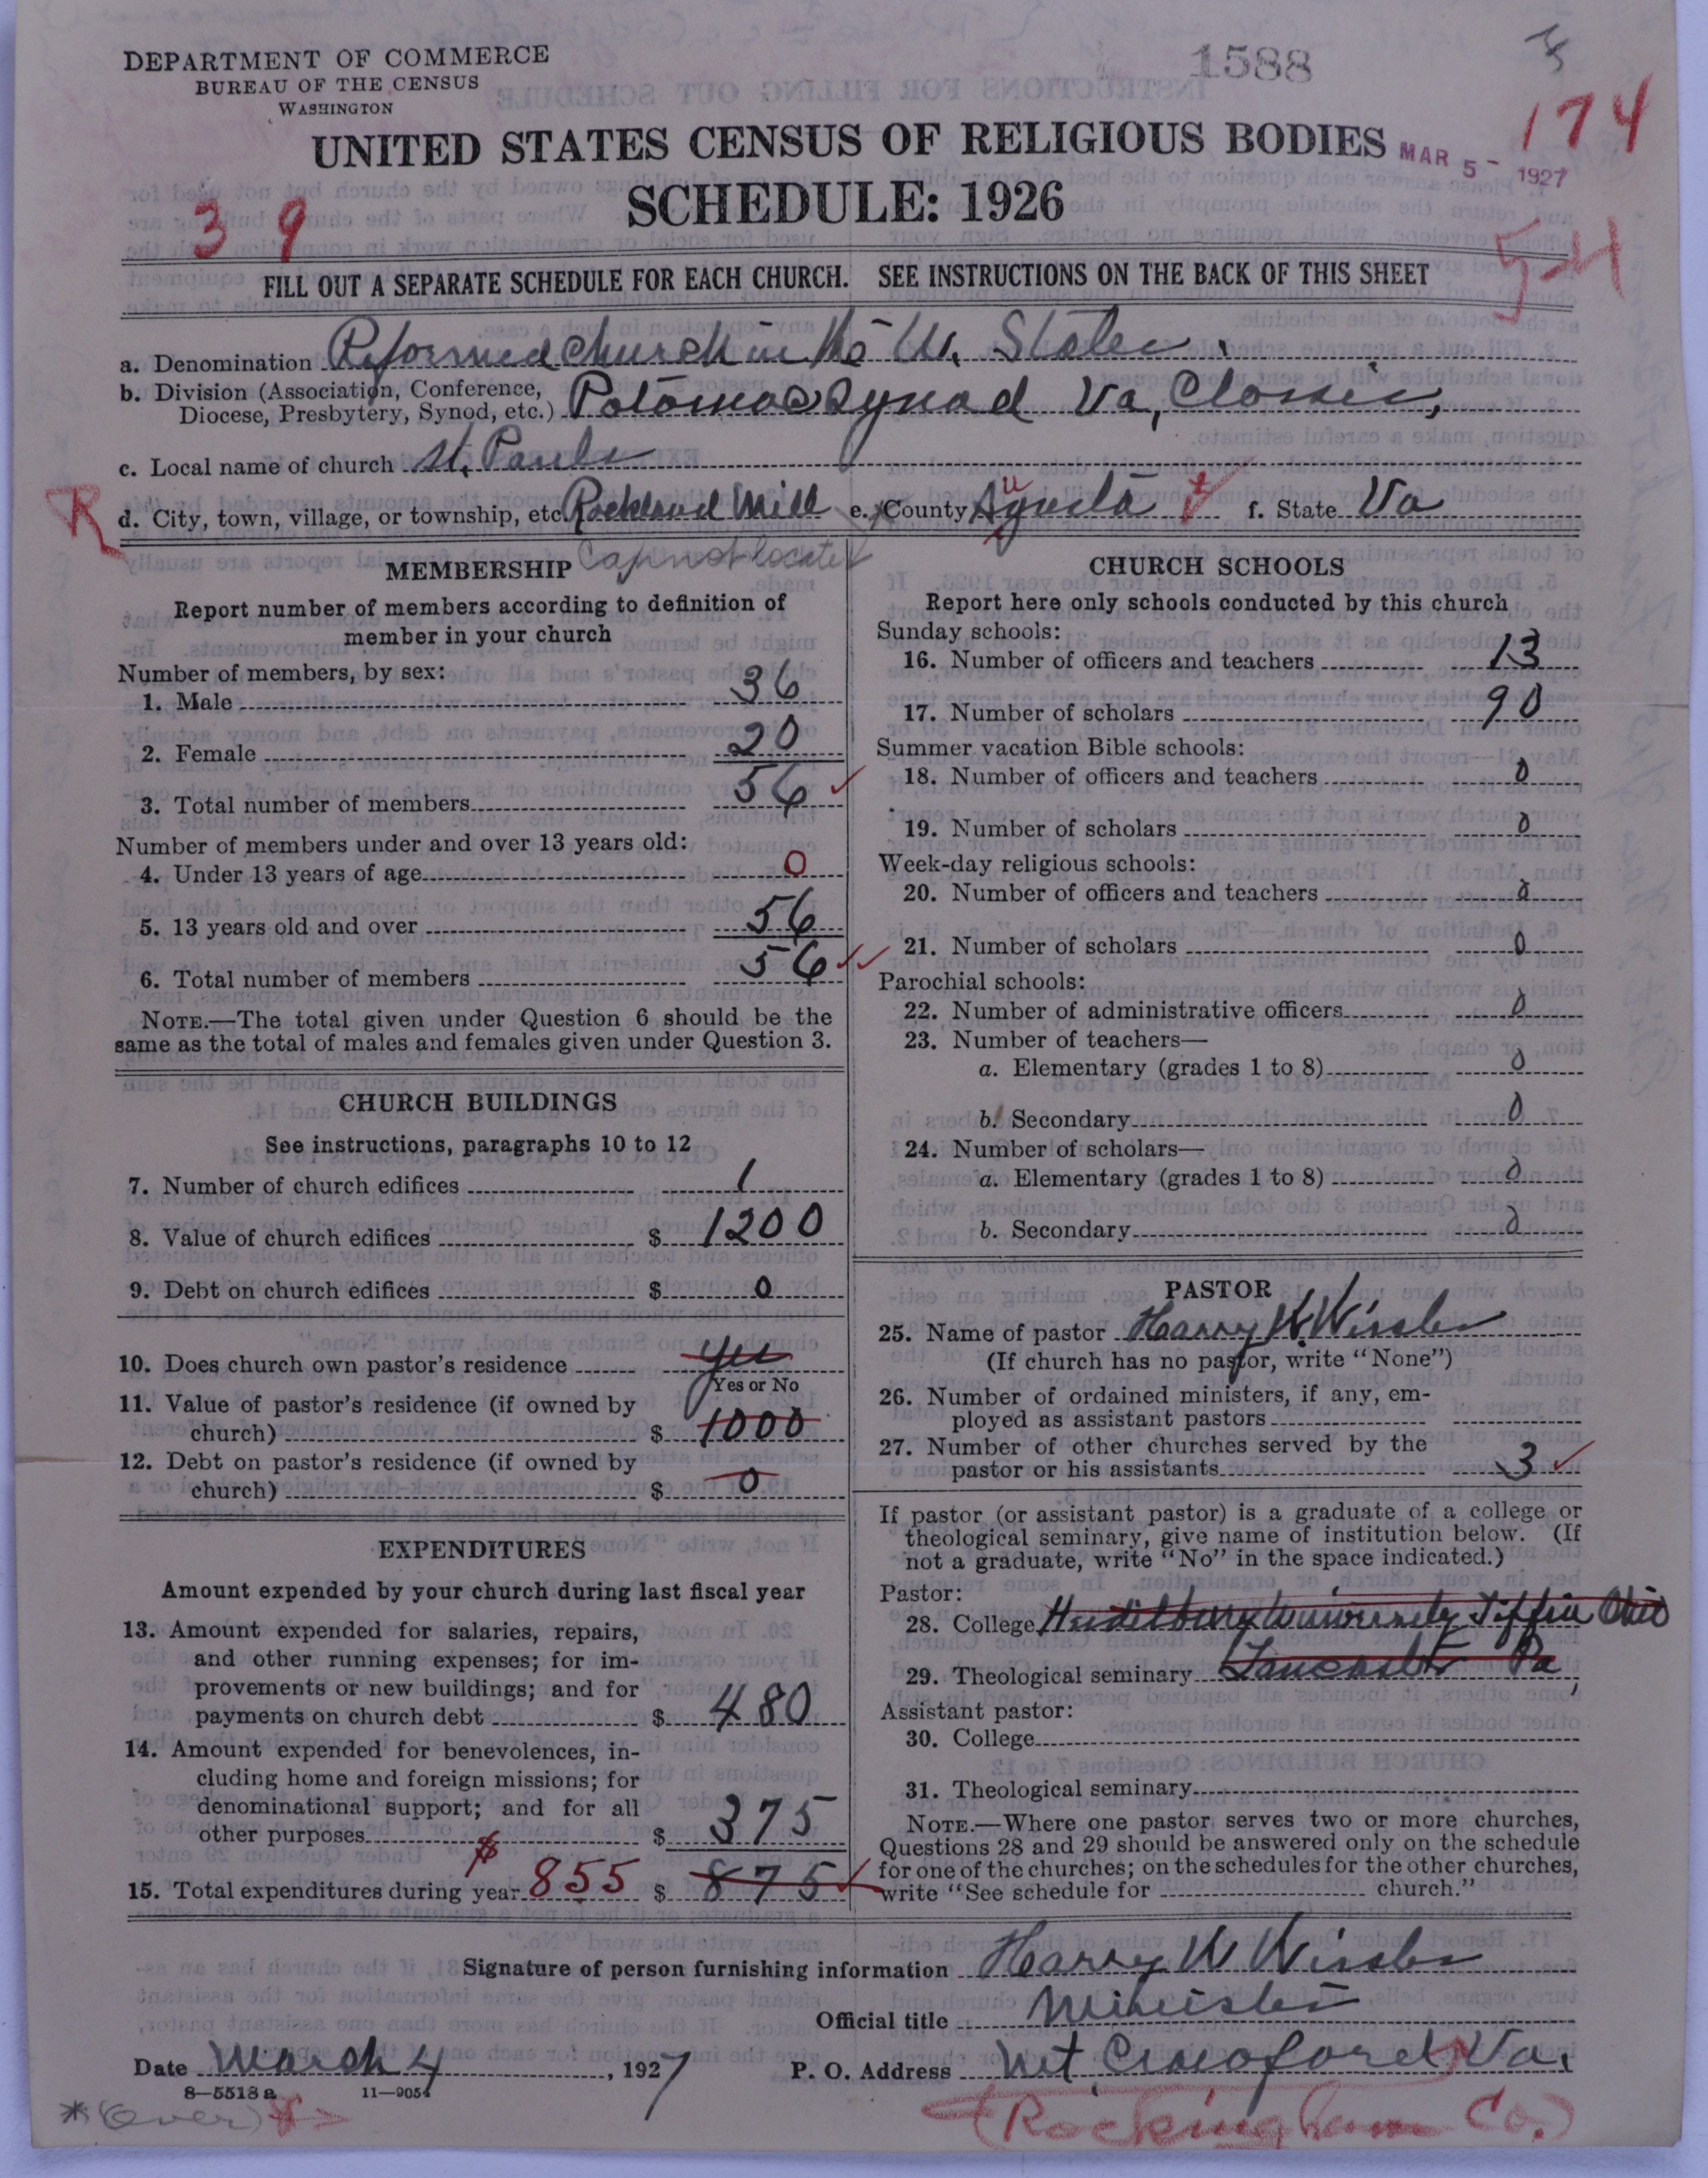 DEPARTMENT OF COMMERCE
BUREAU OF THE CENSUS
WASHINGTON
1588
174
UNITED STATES CENSUS OF RELIGIOUS BODIES
MAR 5 - 1927
SCHEDULE: 1926
3 9
54
FILL OUT A SEPARATE SCHEDULE FOR EACH CHURCH. SEE INSTRUCTIONS ON THE BACK OF THIS SHEET
a. Denomination Reformed Church in the U. States.
b. Division (Association, Conference,
Diocese, Presbytery, Synod, etc.) Potomac Synod Va, Classis,
c. Local name of church St. Pauls
R
d. City, town, village, or township, etc. Rockland Mill e. County Agusta f. State Va
u
Cannot locate
MEMBERSHIP
Report number of members according to definition of
member in your church
Number of members, by sex:
1. Male 36
2. Female 20
3. Total number of members 56
Number of members under and over 13 years old:
4. Under 13 years of age 0
5. 13 years old and over 56
6. Total number of members 56
NOTE.—The total given under Question 6 should be the
same as the total of males and females given under Question 3.
CHURCH BUILDINGS
See instructions, paragraphs 10 to 12
7. Number of church edifices 1
8. Value of church edifices $ 1200
9. Debt on church edifices $ 0
10. Does church own pastor's residence yes
Yes or No
11. Value of pastor's residence (if owned by
church) $ 1000
12. Debt on pastor's residence (if owned by
church) $ 0
EXPENDITURES
Amount expended by your church during last fiscal year
13. Amount expended for salaries, repairs,
and other running expenses; for im-
provements or new buildings; and for
payments on church debt $ 480
14. Amount expended for benevolences, in-
cluding home and foreign missions; for
denominational support; and for all
other purposes $ 375
15. Total expenditures during year $ 855 $ 875
CHURCH SCHOOLS
Report here only schools conducted by this church
Sunday schools:
16. Number of officers and teachers 13
17. Number of scholars 90
Summer vacation Bible schools:
18. Number of officers and teachers 0
19. Number of scholars 0
Week-day religious schools:
20. Number of officers and teachers 0
21. Number of scholars 0
Parochial schools:
22. Number of administrative officers 0
23. Number of teachers—
a. Elementary (grades 1 to 8) 0
b. Secondary 0
24. Number of scholars—
a. Elementary (grades 1 to 8) 0
b. Secondary 0
PASTOR
25. Name of pastor Harry W Wissler
(If church has no pastor, write "None")
26. Number of ordained ministers, if any, em-
ployed as assistant pastors
27. Number of other churches served by the
pastor or his assistants 3
If pastor (or assistant pastor) is a graduate of a college or
theological seminary, give name of institution below. (If
not a graduate, write "No" in the space indicated.)
Pastor:
28. College Heidelburg University Tiffin Ohio
29. Theological seminary Lancaster Pa,
Assistant pastor:
30. College
31. Theological seminary
NOTE.—Where one pastor serves two or more churches,
Questions 28 and 29 should be answered only on the schedule
for one of the churches; on the schedules for the other churches,
write "See schedule for church."
Signature of person furnishing information Harry W Wissler
Official title Minister
Date March 4, 1927 P. O. Address Mt Crawford Va.
8—5518 a 11—9054
* (Over)
(Rockingham Co.)